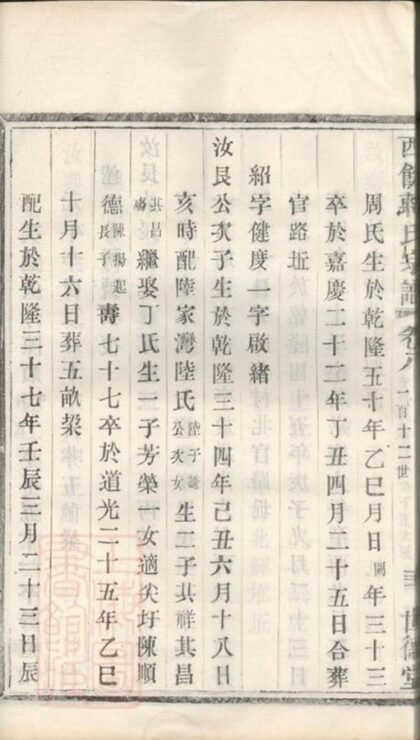 氏宗譜 卷八 一百十二世 世德堂
周氏生於乾隆五十年乙巳月日闕年三十三
卒於嘉慶二十二年丁丑四月二十五日合葬
官路坵
紹字健度一字啟緒
汝艮公次子生於乾隆三十四年己丑六月十八日
亥時配陸家灣陸氏陸子 公次女生二子其祥其昌
其昌 繼娶丁氏生一子芳榮一女適尖圩陳順
德陳揚起長子壽七十七卒於道光二十五年乙巳
十月十六日葬五畝桇
配生於乾隆三十七年壬辰三月二十三日辰